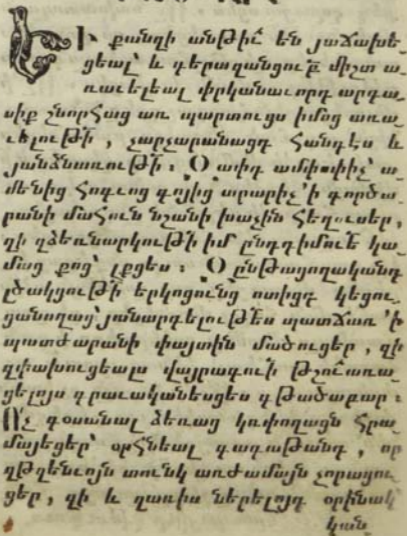 Եւ քանզի անթիւ̃ են յաճախե
ցեալ՝ և գերազանցու̃ք միշտ ա
ռաւելեալ փրկանաւորդ արդա
սիք շնորհաց առ պարտուցս իմոց առա
ւելութի̃, չարչարանացդ հանդէս և
յանձնառութի̃։ Ո
մենից հոգւոց գոյից արարիչ՝ ի գործա
րանի մահուն նշանի խաչին հեղուսեր,
զի զձեռնարկութի̃ իմ ընդդիմու̃ե կա
մաց քոց՝ լքցես։ Օ ընթացողականդ
լծակցութի̃ երկոցունց ոտիցդ կեցու
ցանողաց՝ յանարգելութի̃ես պատճառ ՚ի
պատժարանի փայտին մածուցեր, զի
զփախուցեալս վայրագու̃ի թշու̃առա
ցելոյս գրաւականեսցես գթածաբար։
Ո՛չ զօսանալ ձեռաց կոփողացն հրա
մայեցեր՝ օրհնեալ գագաթանդ, որ
զթզենւոյն տունկ առժամայն չորացու
ցեր, զի և զառիս ներելոյդ օրինակ՝
կան